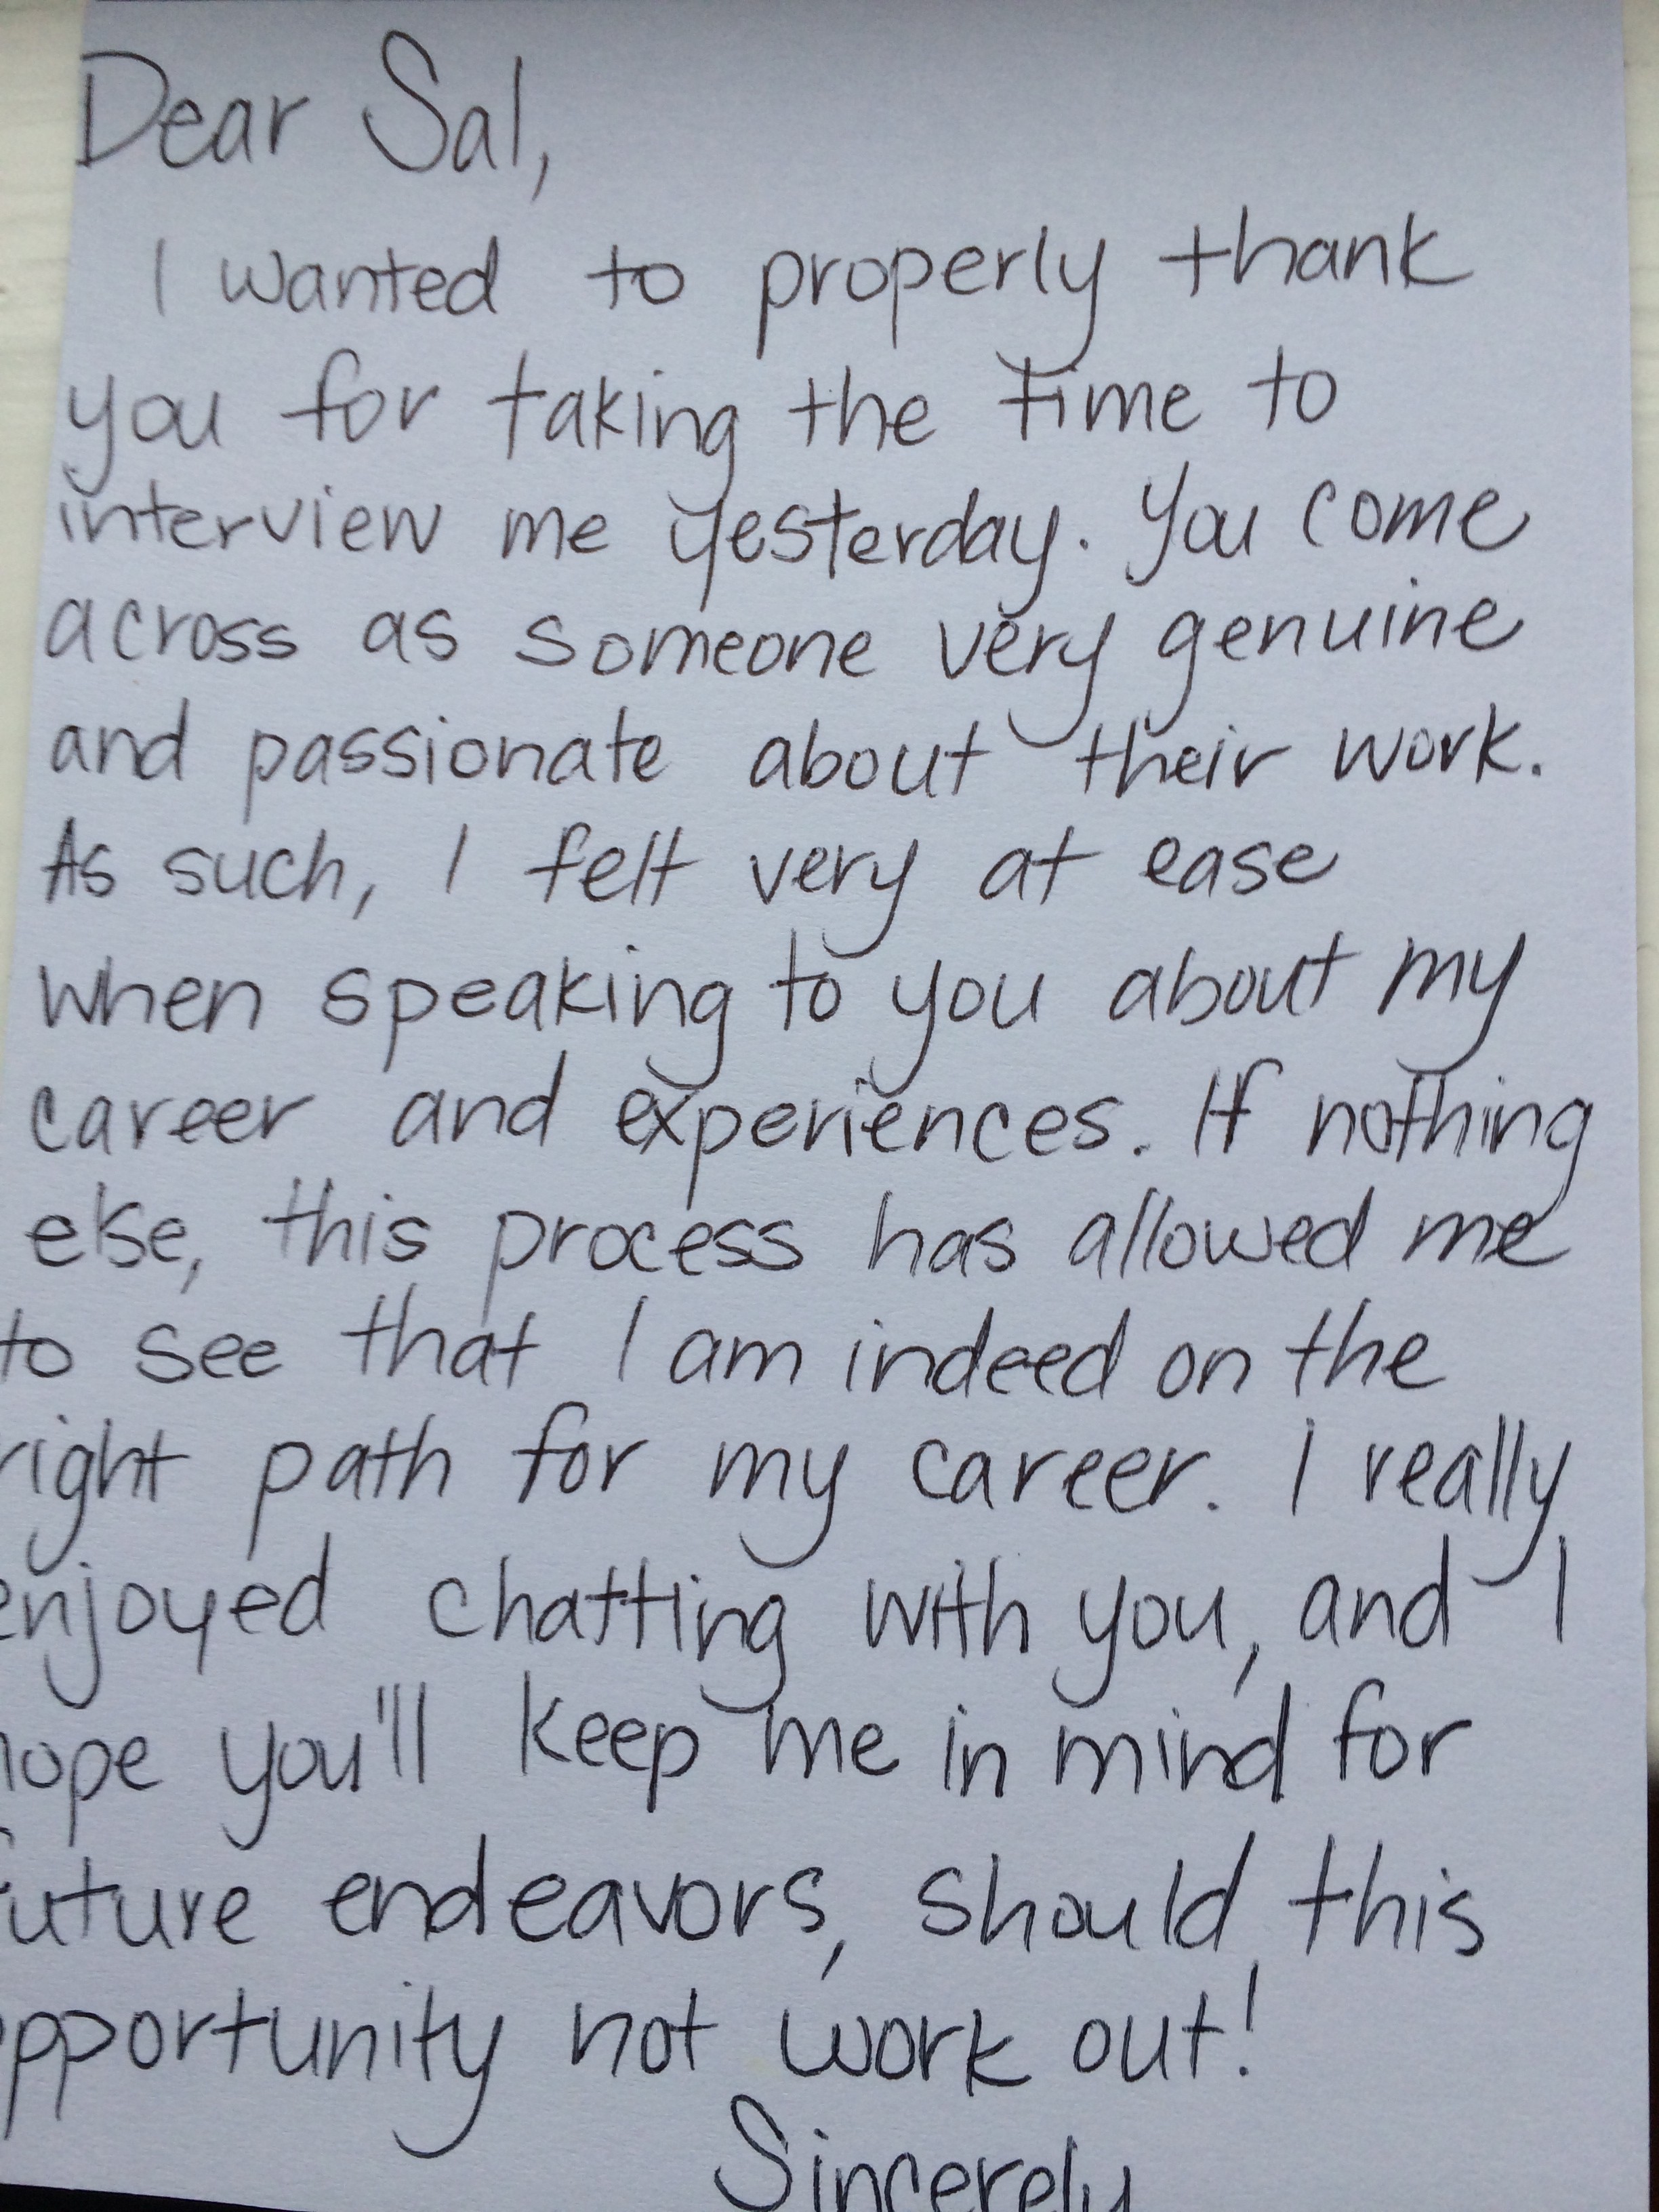 Dear Sal,
I wanted to properly thank
you for taking the time to
interview me yesterday. You come
across as someone very genuine
and passionate about their work.
As such, I felt very at ease
when speaking to you about my
career and experiences. If nothing
else, this process has allowed me
to see that I am indeed on the
right path for my career. I really
enjoyed chatting with you, and I
hope you'll keep me in mind for
future endeavors, should this
opportunity not work out!
Sincerely